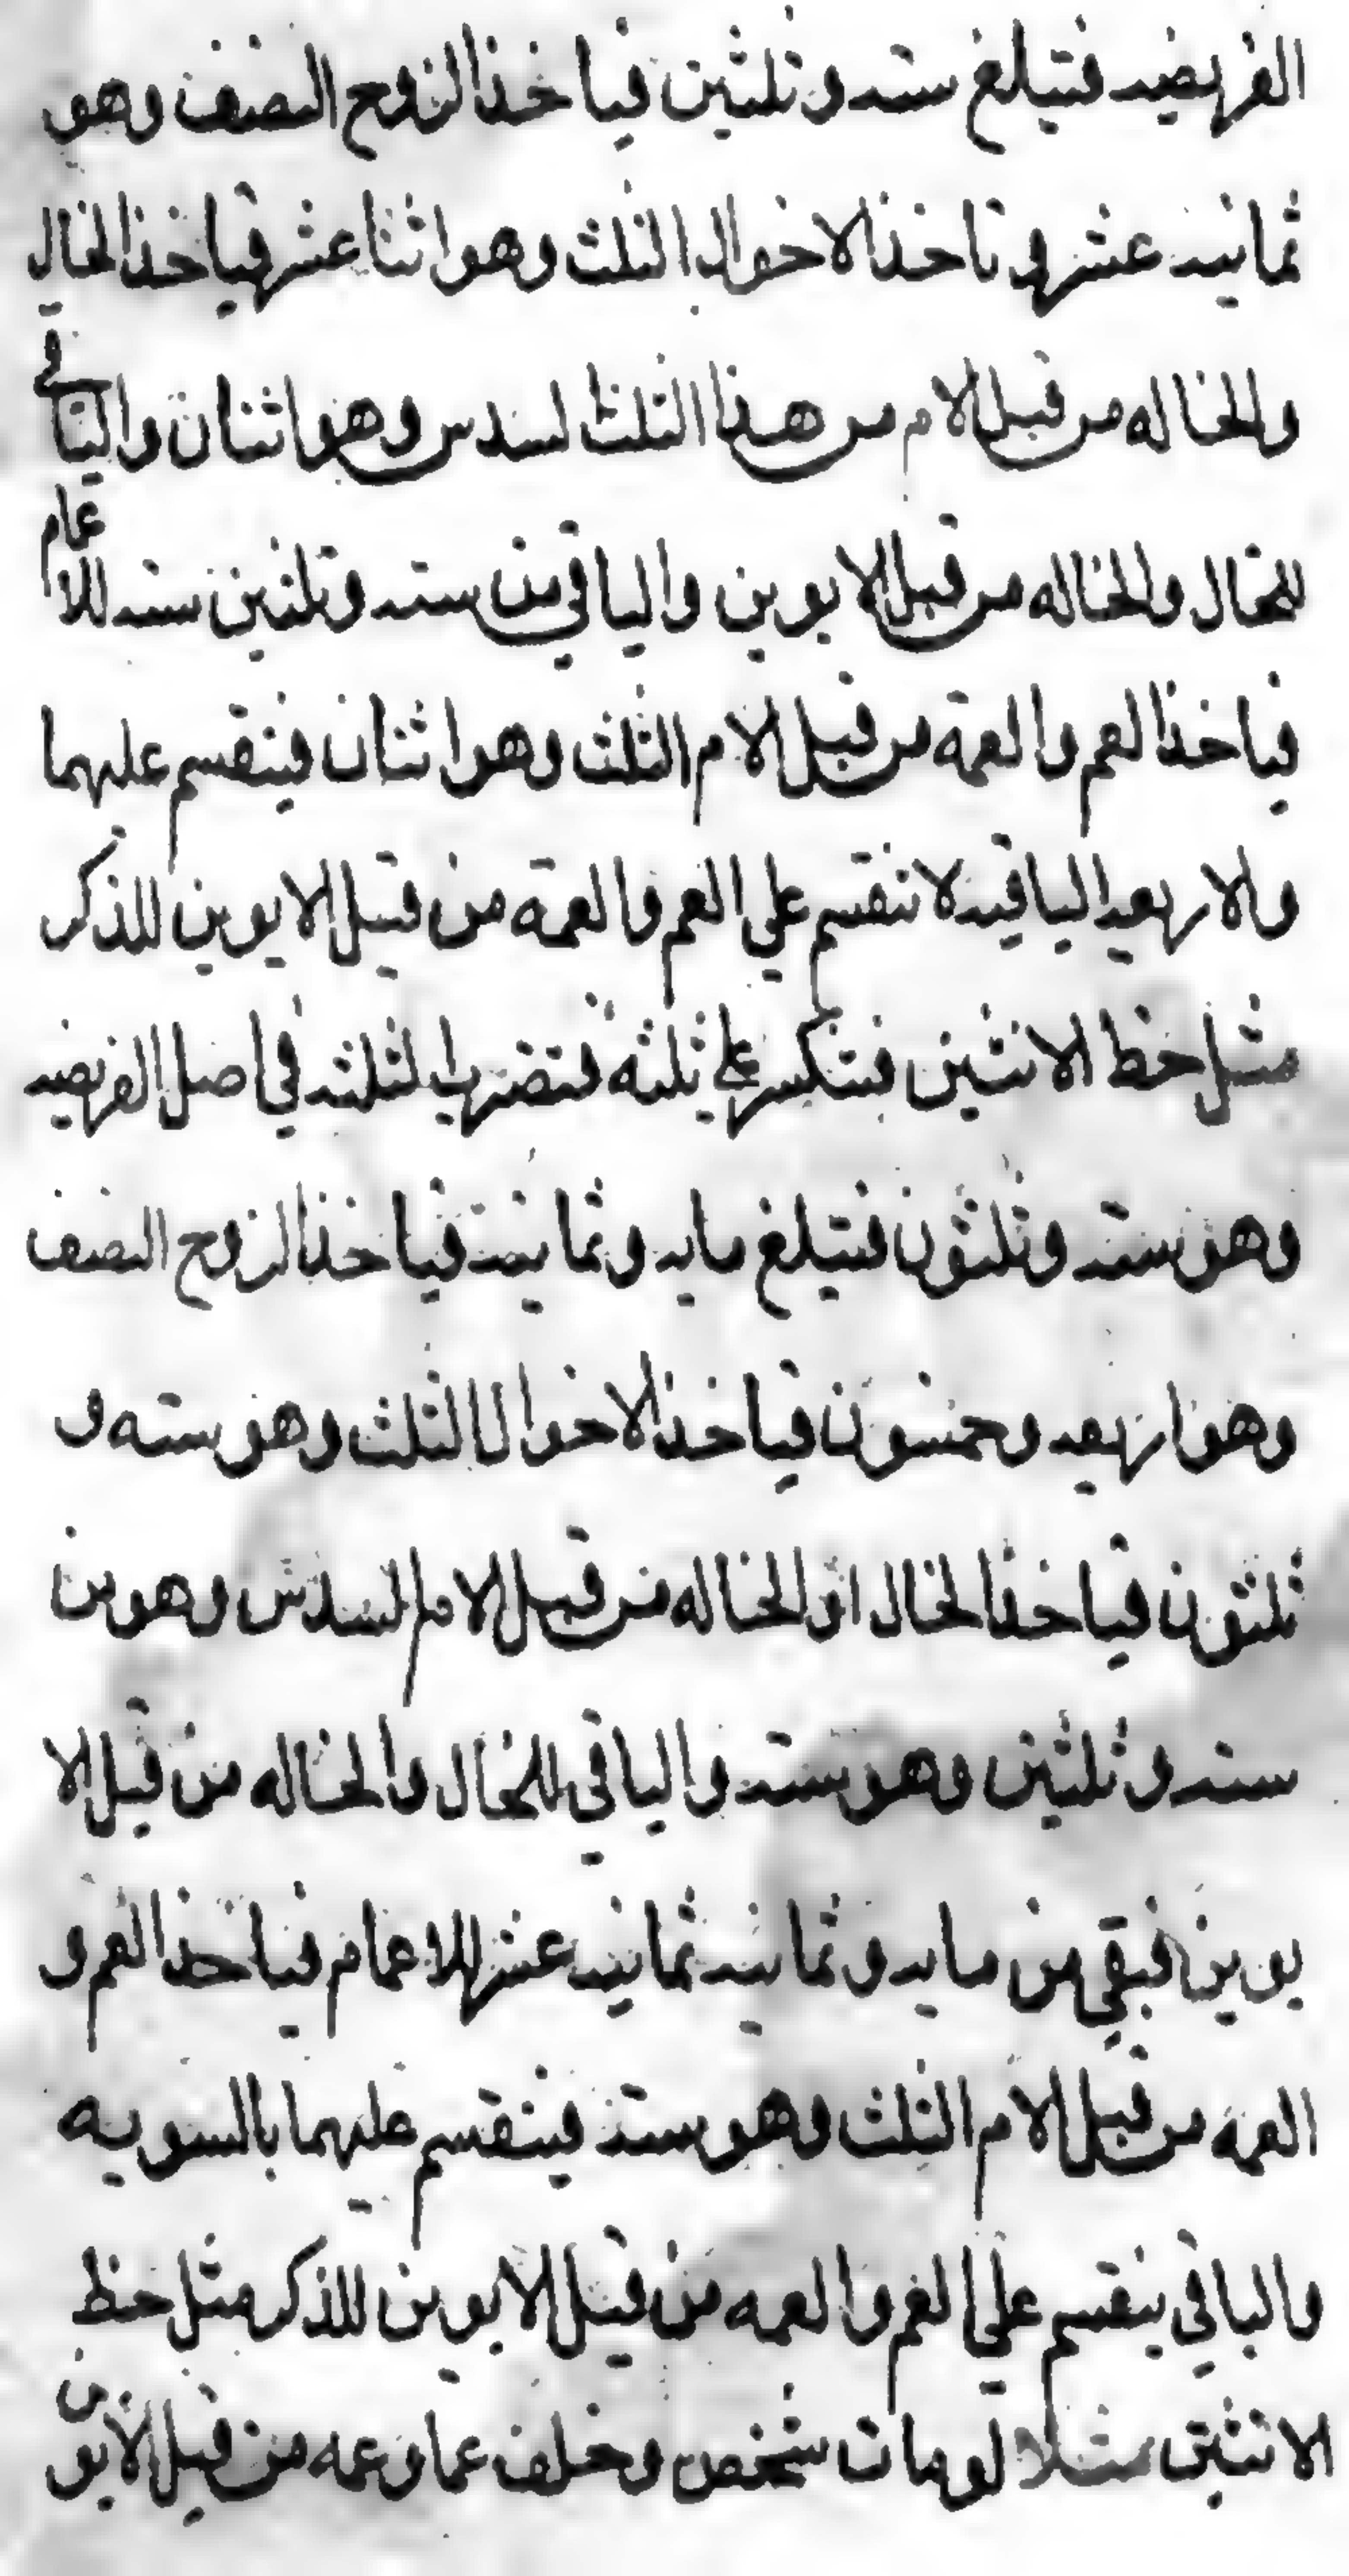 الفريضه فتبلغ سته وثلثين فياخذ الزوج النصف وهو
ثمانيه عشر و تاخذ الاخوال الثلث وهو اثنا عشر فياخذ الخال
والخاله من قبل الام من هذا الثلث لسدس وهو اثنان والباقي
للخال والخاله من قبل الابوين والباقي من سته وثلثين سته للاعمام
فياخذ العم والعمة من قبل الام الثلث وهو اثنان فينقسم عليهما
والاربعه الباقيه لا تنقسم علي العم والعمة من قبل الابوين للذكر
مثل حظ الانثين فتنكسر علي ثلثه فتضرب الثلثه في اصل الفريضه
وهو سته وثلثون فتبلغ مايه وثمانيه فياخذ الزوج النصف
وهو اربعه وخمسون فياخذ الاخوال الثلث وهو سته و
ثلثون فياخذ الخال او الخاله من قبل الام السدس وهو من
سته وثلثين وهو سته والباقي للخال والخاله من قبل الا
بوين فبقي من مايه وثمانيه ثمانيه عشر للاعمام فياخذ العم و
العمه من قبل الام الثلث وهو سته فينقسم عليهما بالسويه
والباقي ينقسم علي العم والعمه من قبل الابوين للذكر مثل حظ
الانثين مثلا لو مات شخص وخلف عما وعمه من قبل الابوين